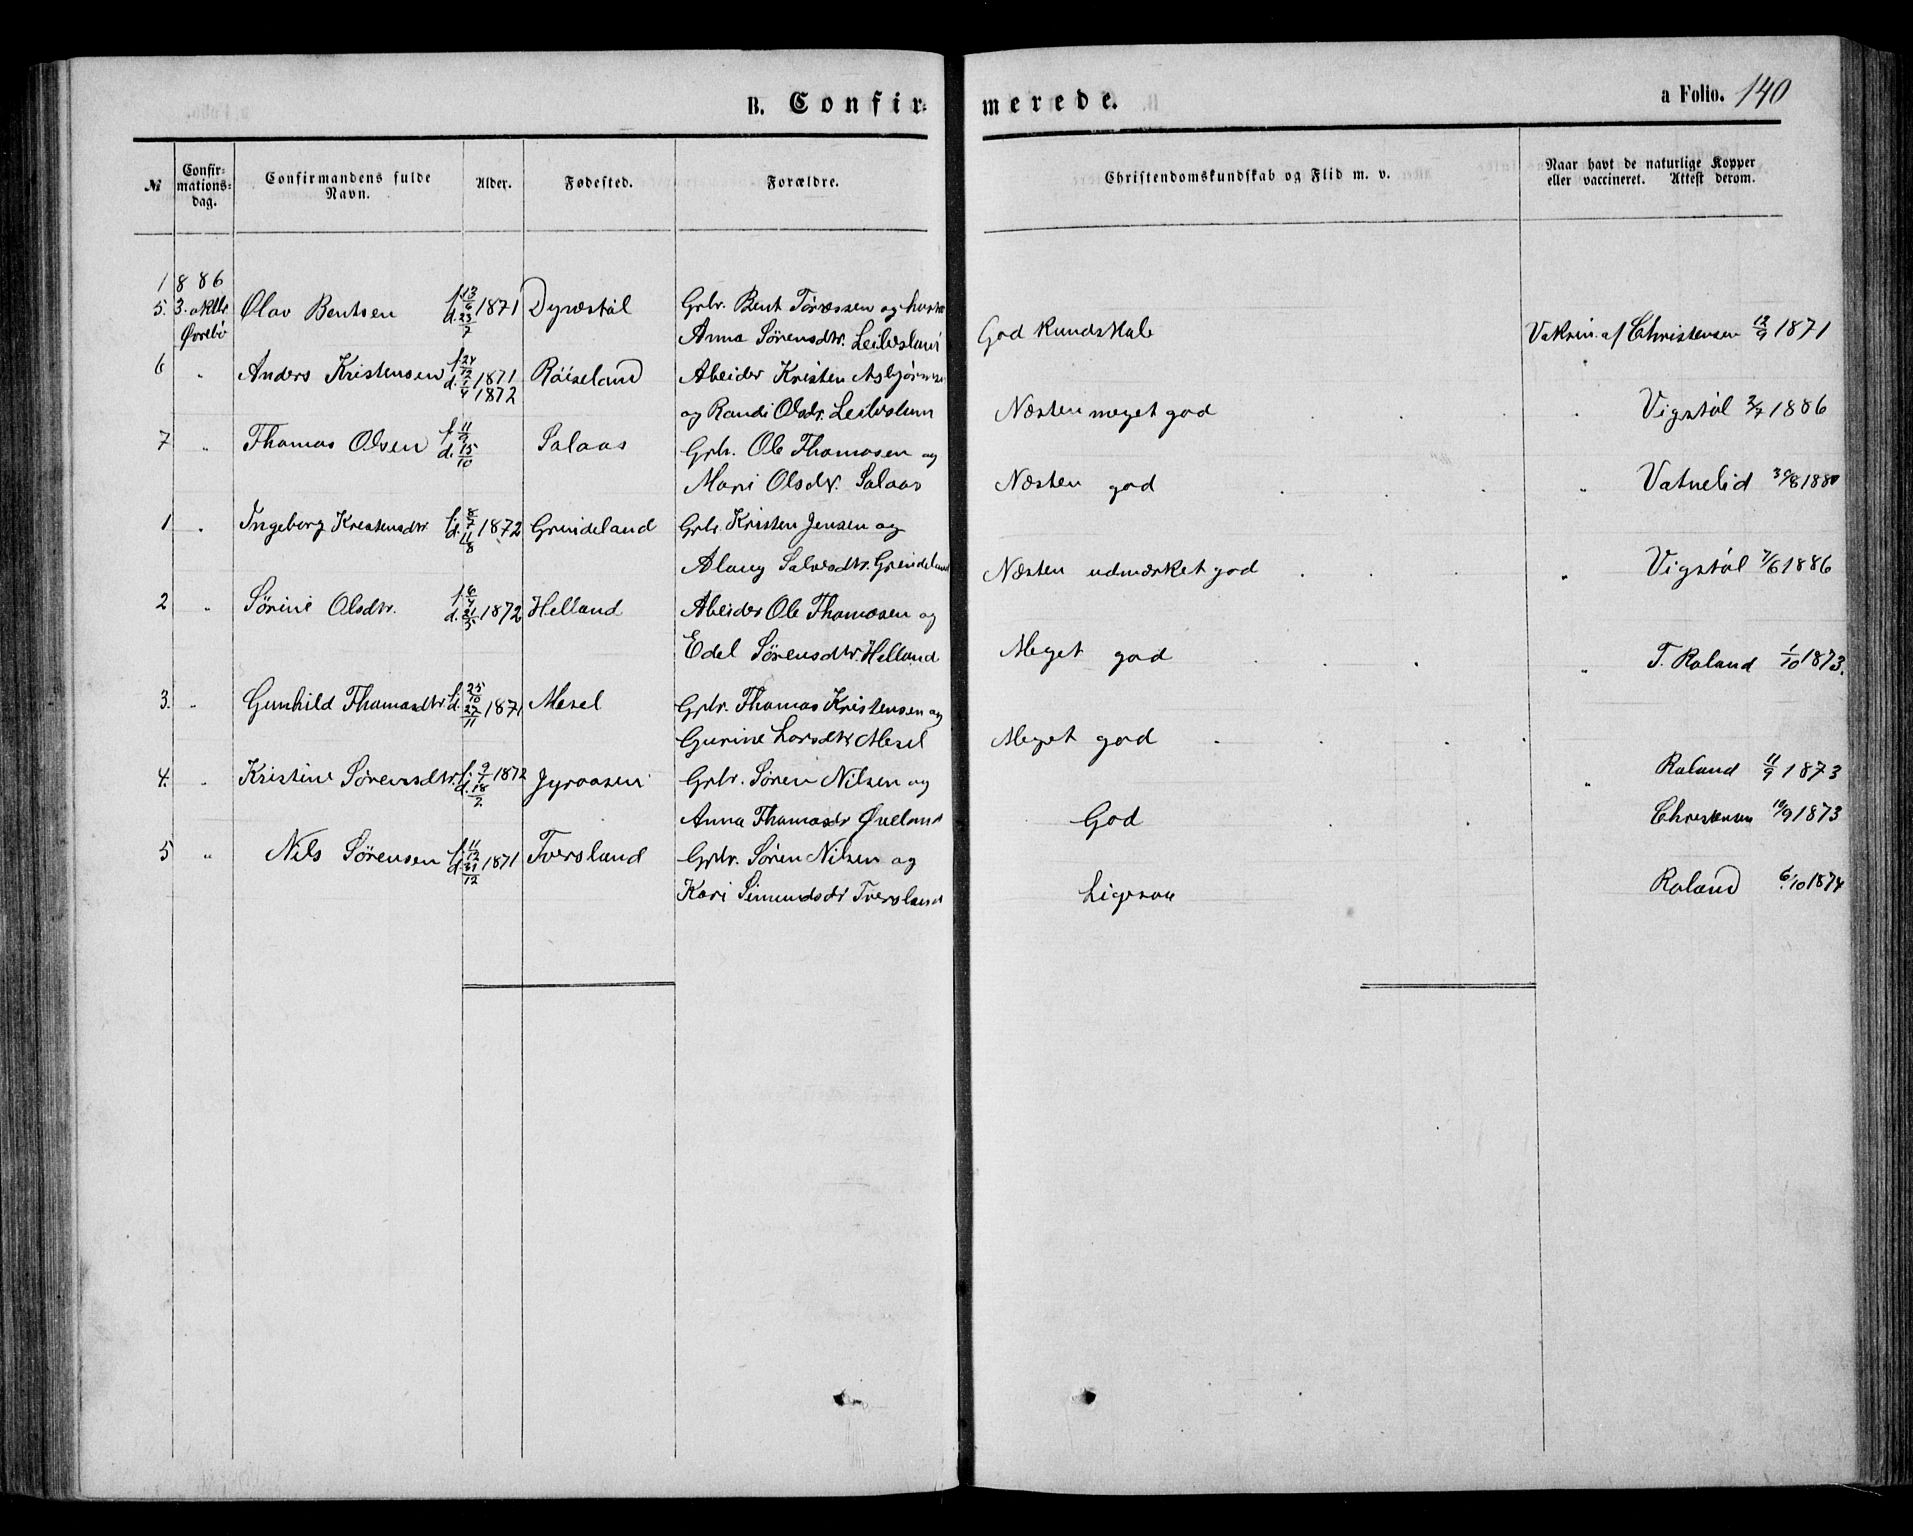 B. Confir-
merede.
a Folio. 140
№
Confir-
mations-
dag.
Confirmandens fulde
Navn.
Alder.
Fødested.
Forældre.
Christendomskundskab og Flid m. v.
Naar havt de naturlige Kopper
eller vaccineret. Attest derom.
1886
5. 3. oktbr. Olav Bentsen f. 13/6 1871 Dyrestøl Grbr. Bent Tørressen og hustru
Øvrebø d. 23/7 Anna Sørensdtr. God Kundskab Vakcin. af Christensen 12/9 1871
6 " Anders Kristensen f. 24/12 1871 Røiseland Abeider Kristen Asbjørnsen
d. 1/4 1872 og Randi Olsdr. Næsten meget god " Vigstøl 2/7 1886
7 " Thomas Olsen f. 11/9 Salaas Grbr. Ole Thomasen og
d. 15/10 Mari Olsdtr. Salaas Næsten god " Vatnelid 30/8 1880
1 " Ingeborg Kristensdtr f. 8/7 1872 Grindeland Grbr Kristen Jensen og
d. 11/8 Alany Salvesdtr. Grindeland Næsten udmærket god " Vigstøl 7/6 1886
2 " Sørine Olsdtr. f. 6/4 1872 Helland Abeider Ole Thomasen og
d. 31/5 Edel Sørensdtr. Helland Meget god " T. Roland 1/10 1873.
3. " Gunhild Thomasdtr f. 25/10 1871 Mesel Grbr. Thomas Kristensen og
d. 27/11 Gurine Larsdtr Mesel Meget god " Roland 11/9 1873
4. " Kristine Sørensdtr. f. 9/1 1872 Jyraasen Grbr. Søren Nilsen og
d. 18/2 Anna Thomasdr Øieland God Christensen 10/9 1873
5 " Nils Sørensen f. 11/12 1871 Tversland Grbr. Søren Nilsen og
d. 31/12 Kari Simundsdr Tversland Ligesaa Roland 6/10 1874